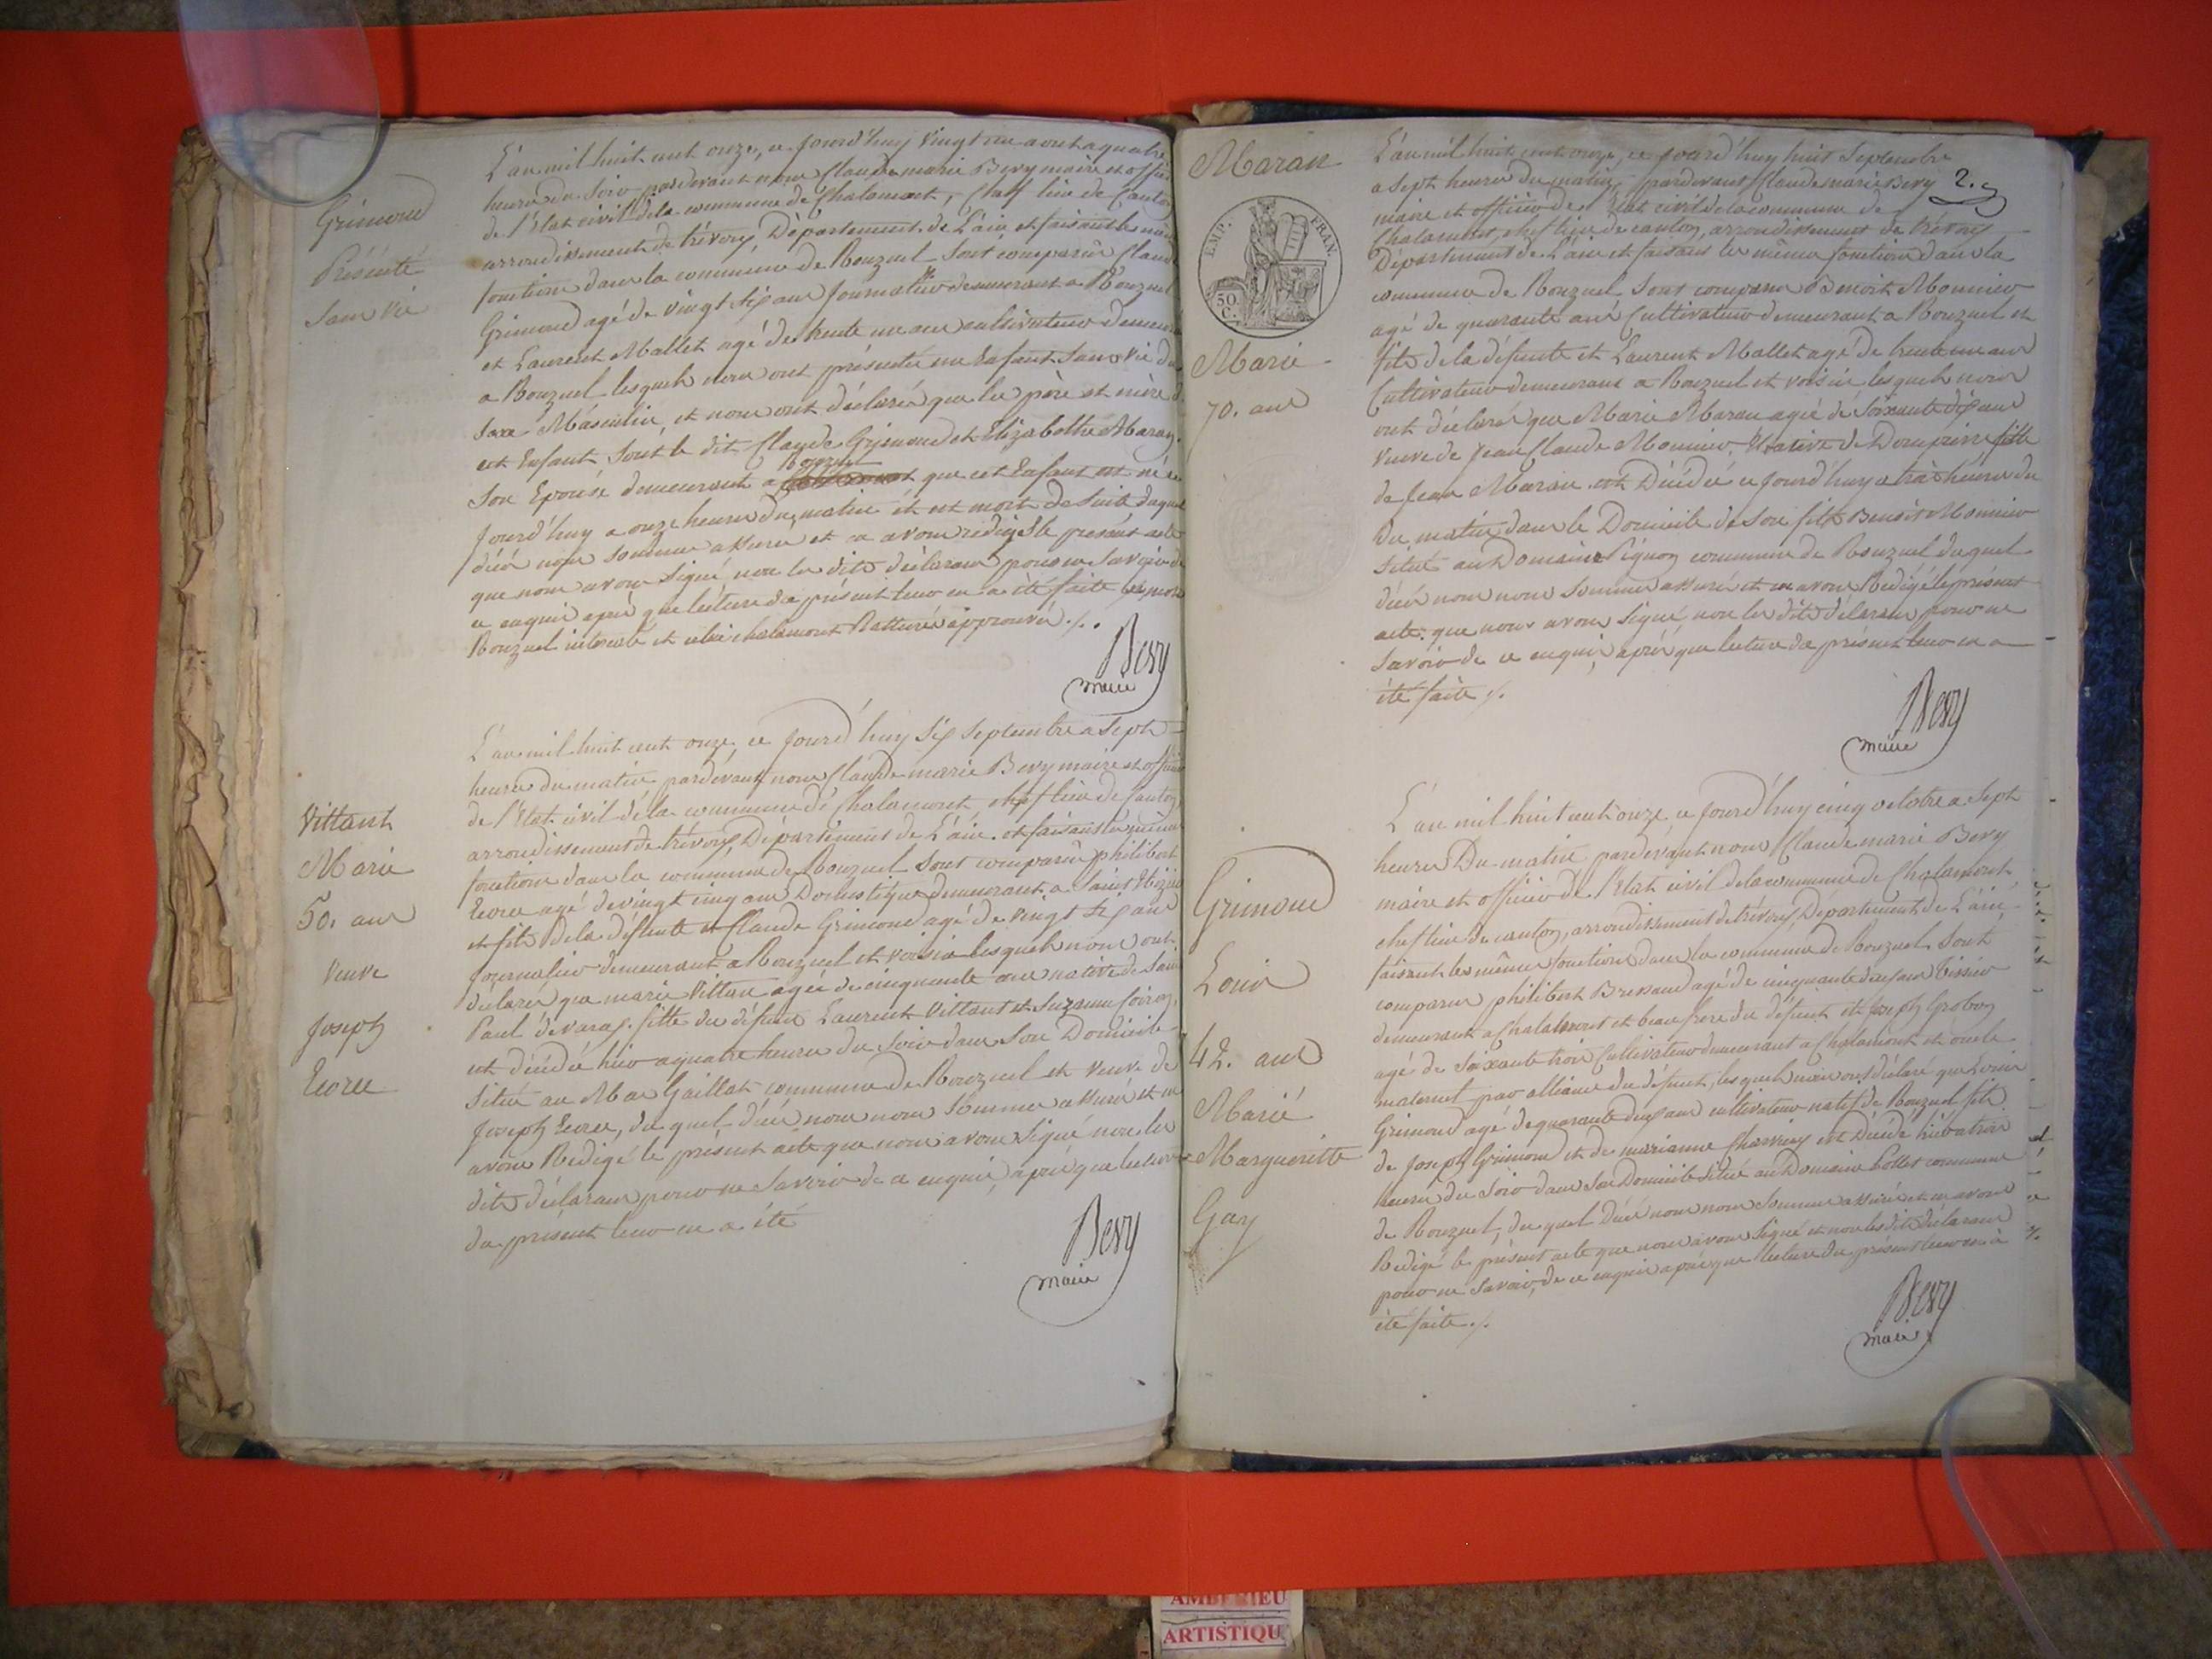 Grimoud
Présenté
Sans vie
L'an mil huit cent onze, ce jourd'huy vingt un aout a quatre
heures du soir pardevant nous Claude marie Bevy maire et offici
de l'Etat civil de la commune de Chalamont, Chef lieu de Canton
arrondissement de trévoux, Département de L'ain et faisant les mêm
fonctions dans la commune de Ronzuel Sont comparus Claude
Grimoud agé de vingt six ans Journalier demeurant a Ronzuel
et Laurent Mallet agé de trente un ans cultivateur demeur
a Ronzuel lesquels nous ont présenté un Enfant Sans vie du
Sexe Masculin, et nous ont déclaré que les père et mère d
cet Enfant Sont le dit Claude Grimoud et Elizabethe Maran
Son Epouse demeurant a Ronzuel que cet Enfant est né ce
Jourd'huy a onze heures du matin et est mort de Suite duquel
décé nous sommes assurés et en avons rédigé le présent acte
que nous avons Signé non les dits déclarans pour ne Savoir de
ce enquis après que lecture du présent leur en a été faite les mots
Ronzuel interente et celui chalamont Ratturé approuvé ./.
Bevy
maire
Vittant
Marie
50. ans
veuve
Joseph
Ecorée
L'an mil huit cent onze, ce Jourd'huy Six Septembre a Sept
heures du matin, pardevant nous Claude marie Bevy maire et officier
de l'Etat civil de la commune de Chalamont, chef lieu de Canton
arrondissement de trévoux, Département de L'ain et faisant les mêmes
fonctions dans la commune de Ronzuel Sont comparus philibert
Ecoree agé de vingt cinq ans Domestique demeurant a Saint
et fils de la défunte et Claude Grimoud agé de vingt six ans
Journalier demeurant a Ronzuel et voisin lesquels nous ont
déclaré que marie Vittan agée de cinquante ans native de Sain
Paul de varax. fille du défunt Laurent Vittant et Suzanne
est décédée hier a quatre heures du soir dans Son Domicile
Situé au Mas Gaillat commune de Ronzuel et veuve de
Joseph Ecoree, du quel décé nous nous Sommes assuré et en
avons Redigé le présent acte que nous avons Signé non les
dits déclarans pour ne Savoir de ce enquis, après que lecture
du présent leur en a été
Bevy
maire
Maran
EMP. FRAN.
50.
C.
Marie
70. ans
2.
L'an mil huit cent onze, ce jourd'huy huit Septembre
a Sept heures du matin, pardevant Claude marie Bevy
maire et officier de l'Etat civil de la commune de
Chalamont, chef lieu de canton, arrondissement de trévoux
Département de L'ain et faisant les mêmes fonctions dans la
commune de Ronzuel Sont comparus Benoit Monnier
agé de quarante ans Cultivateur demeurant a Ronzuel et
fils de la défunte et Laurent Mallet agé de trente un ans
Cultivateur demeurant a Ronzuel et voisin lesquels nous
ont déclaré que Marie Maran agée de Soixante dix ans
veuve de Jean Claude Monnier, Native de Dompierre fille
de Jean Maran est Décédée ce Jourd'huy a trois heures du
Du matin dans le Domicile de Son fils Benoit Monnier
Situé au Domaine Pignon commune de Ronzuel duquel
décé nous nous Sommes assurés et en avons Redigé le présent
acte que nous avons Signé, non les dits déclarans pour ne
Savoir de ce enquis, après que lecture du présent leur en a
été faite ./.
Bevy
maire
Grimoud
Louis
42. ans
Marié
Marguerite
Gay
L'an mil huit cent onze ce Jourd'huy cinq octobre a Sept
heures Du matin pardevant nous Claude marie Bevy
maire et officier de l'Etat civil de la commune de Chalamont
chef lieu de canton, arrondissement de trévoux, Département de L'ain,
faisant les mêmes fonctions dans la commune de Ronzuel Sont
comparus philibert Bressand agé de cinquante deux ans tissier
demeurant a Chalamont et beau frere du défunt et Joseph Grobon
agé de Soixante trois Cultivateur demeurant a Chalamont et oncle
maternel par alliance du défunt, lesquels nous ont déclaré que Louis
Grimoud agé de quarante deux ans cultivateur natif de Ronzuel fils
de Joseph Grimoud et de marianne est Décédé hier a trois
heures du Soir dans Son Domicile Situé au Domaine Collet commune
de Ronzuel, du quel Décé nous nous Sommes assurés et en avons
Redigé le présent acte que nous avons Signé et non les dits déclarans
pour ne Savoir, de ce enquis après que lecture du présent leur en a
été faite ./.
Bevy
maire
AMBERIEU
ARTISTIQU